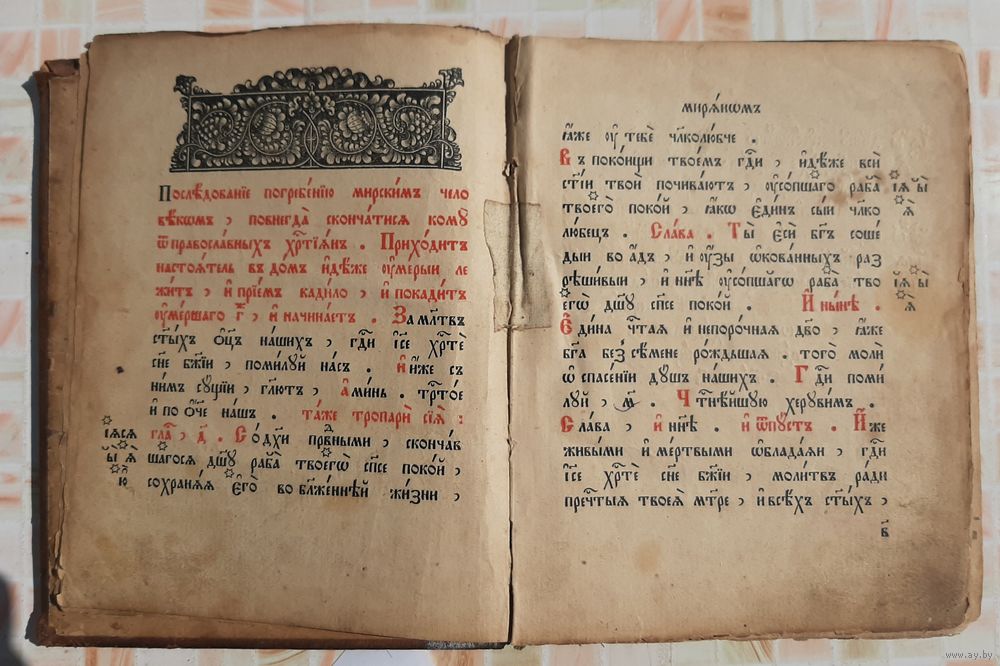 Послѣдованїе погребе́нїю мирски́мъ чело
вѣ́кωмъ , повнегда̀ сконча́тисѧ комꙋ̀
ѿ правосла́вныхъ хр҇тїѧ́нъ . Прихо́дитъ
настоѧ́тель в до́мъ и҆дѣ́же ᲂу҆ме́рыи ле
жи́тъ , и҆ прїе́мъ кади́ло , и҆ покади́тъ
ᲂу҆ме́ршаго г҃ , и҆ начина́етъ . За мл҃твъ
ст҃ы́хъ ѻ҆ц҃ъ на́шихъ , гд҇и і҆с҃е хр҇тѐ
сн҃е бж҃їи , поми́лꙋй на́съ . и҆ и҆́же съ
ни́мъ сꙋ́щїи , гл҃ютъ , а҆ми́нь . тр҇то́е
и҆ по ѻ҆́ч҃е на́шъ . та́же тропарѝ сїѧ̀ :
гла҇ , д҃ . Со дх҃и пра́вными , сконча́в
і҆́ѧсѧ
шагосѧ дш҃ꙋ раба̀ твоегѡ̀ сп҃се поко́й ,
ы́и ѧ
ю
сохранѧ́ѧ є҆гѡ̀ во бл҃же́ннѣй жи́зни ,
мирѧ́нѡмъ
ꙗ҆́же ᲂу҆ тебѐ чл҃колю́бче .
Въ поко́ищи твое́мъ гд҇и , и҆дѣ́же всѝ
ст҃і́и твоѝ почива́ютъ , ᲂу҆со́пшаго раба̀
і҆́ѧ ы́
твоего̀ поко́й , ꙗ҆́кѡ є҆ди́нъ сы́и чл҃ко
ѧ
лю́бецъ . Сла́ва . Ты̀ є҆сѝ бг҃ъ соше́
дыи во а҆́дъ , и҆ ᲂу҆́зы ѡ҆кова́нныхъ раз
рѣши́выи , и҆ нн҃ѣ ᲂу҆со́пшагѡ раба̀ тво
і҆́ѧ ы́
егѡ̀ дш҃ꙋ сп҃се поко́й . И҆ ны́нѣ .
ѧ
Є҆ди́на чт҇аѧ и҆ непоро́чнаѧ дв҃о , ꙗ҆́же
бг҃а без̾ сѣ́мене ро́ждьшаѧ . того̀ молѝ
ѡ҆ спасе́нїи дꙋ́шъ на́шихъ . Гд҇и поми́
лꙋй , м҃ . Чтⷭ҇нѣ́йшꙋю херꙋви́мъ .
Сла́ва , и҆ нн҃ѣ . и҆ ѿпꙋ́стъ . И҆́же
живы́ми и҆ ме́ртвыми ѡ҆блада́ѧи , гд҇и
і҆с҃е хр҇тѐ сн҃е бж҃їи , моли́твъ ра́ди
преч҇тыѧ твоеѧ̀ мт҃ре , и҆ всѣ́хъ ст҃ы́хъ ,
в҃
www.ay.by